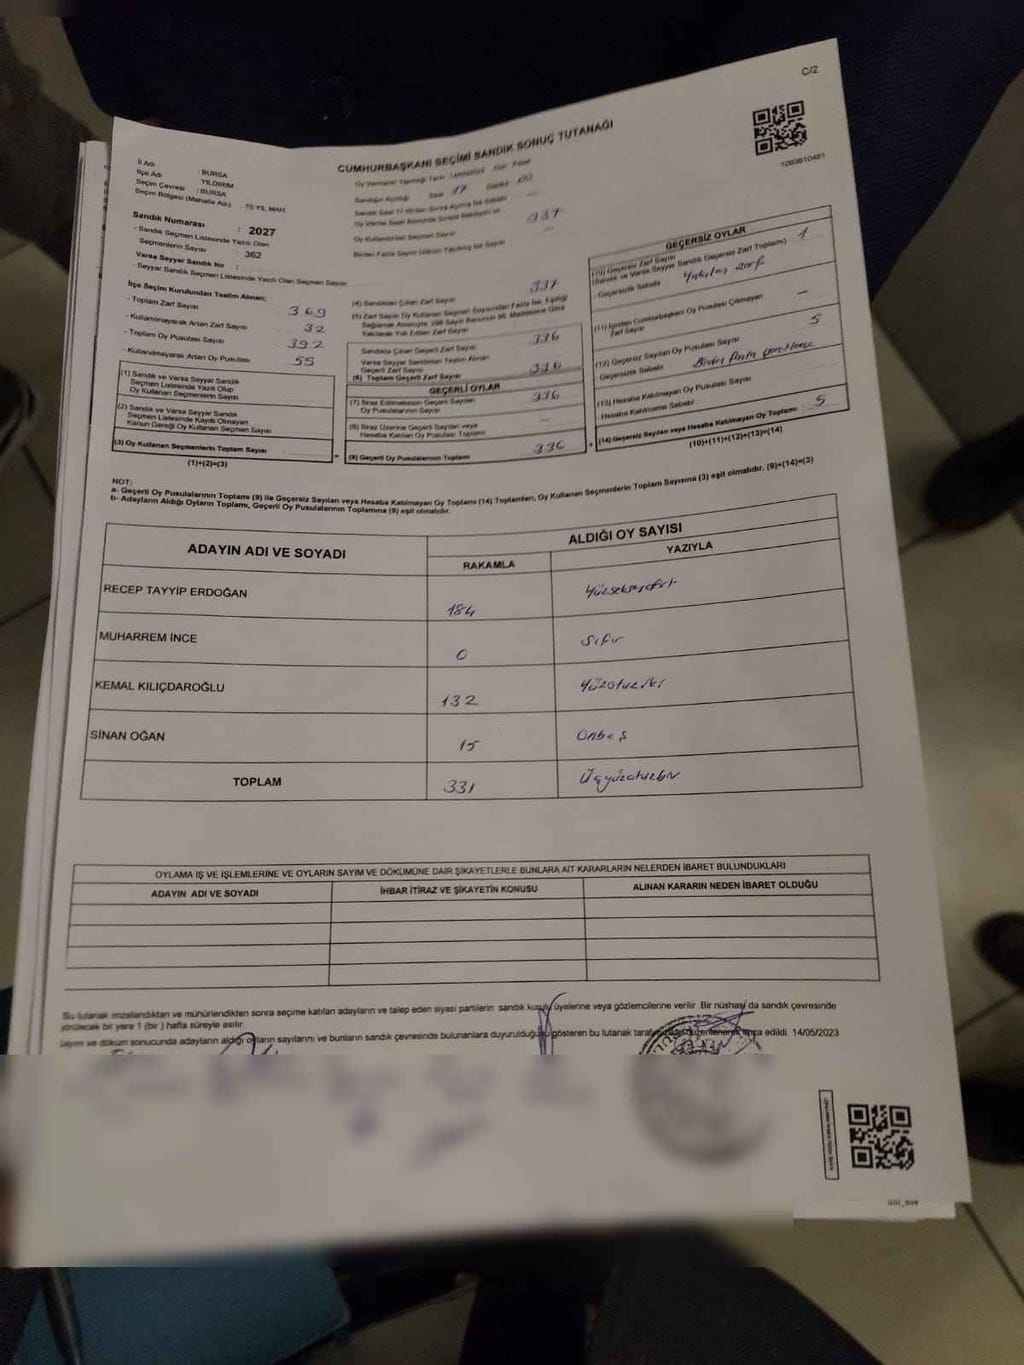 C/2
1093810451
CUMHURBAŞKANI SEÇİMİ SANDIK SONUÇ TUTANAĞI
İl Adı : BURSA
İlçe Adı : YILDIRIM
Seçim Çevresi : BURSA
Seçim Bölgesi (Mahalle Adı) 75 YIL MAH.
Sandık Numarası : 2027
- Sandık Seçmen Listesinde Yazılı Olan
Seçmenlerin Sayısı : 362
Varsa Seyyar Sandık No :
- Seyyar Sandık Seçmen Listesinde Yazılı Olan Seçmen Sayısı
İlçe Seçim Kurulundan Teslim Alınan;
- Toplam Zarf Sayısı 369
- Kullanılmayarak Artan Zarf Sayısı 32
- Toplam Oy Pusulası Sayısı 392
- Kullanılmayarak Artan Oy Pusulası 55
(1) Sandık ve Varsa Seyyar Sandık
Seçmen Listesinde Yazılı Olup
Oy Kullanan Seçmenlerin Sayısı
(2) Sandık ve Varsa Seyyar Sandık
Seçmen Listesinde Kaydı Olmayan
Kanun Gereği Oy Kullanan Seçmen Sayısı
(3) Oy Kullanan Seçmenlerin Toplam Sayısı
(1)+(2)=(3)
Oy Kullanan Seçmen Sayısı
337
(4) Sandıktan Çıkan Zarf Sayısı 337
Sandıkta Çıkan Geçerli Zarf Sayısı 336
Varsa Seyyar Sandıktan Teslim Alınan
Geçerli Zarf Sayısı
(6) Toplam Geçerli Zarf Sayısı 336
GEÇERLİ OYLAR
(7) İtiraz Edilmeksizin Geçerli Sayılan
Oy Pusulalarının Sayısı 336
(8) İtiraz Üzerine Geçerli Sayılan veya
Hesaba Katılan Oy Pusulası Toplamı
(9) Geçerli Oy Pusulalarının Toplamı 336
GEÇERSİZ OYLAR
(10) Geçersiz Zarf Sayısı
(Sandık ve Varsa Seyyar Sandık Geçersiz Zarf Toplamı) 1
- Geçersizlik Sebebi zarf
(11) İçinden Cumhurbaşkanı Oy Pusulası Çıkmayan
Zarf Sayısı —
(12) Geçersiz Sayılan Oy Pusulası Sayısı 5
Geçersizlik Sebebi Birden fazla
(13) Hesaba Katılmayan Oy Pusulası Sayısı
Hesaba Katılmama Sebebi
(14) Geçersiz Sayılan veya Hesaba Katılmayan Oy Toplamı : 5
(10)+(11)+(12)+(13)=(14)
NOT:
a- Geçerli Oy Pusulalarının Toplamı (9) ile Geçersiz Sayılan veya Hesaba Katılmayan Oy Toplamı (14) Toplamları, Oy Kullanan Seçmenlerin Toplam Sayısına (3) eşit olmalıdır. (9)+(14)=(3)
b- Adayların Aldığı Oyların Toplamı, Geçerli Oy Pusulalarının Toplamına (9) eşit olmalıdır.
ADAYIN ADI VE SOYADI
ALDIĞI OY SAYISI
RAKAMLA YAZIYLA
RECEP TAYYİP ERDOĞAN 184 Yüzseksendört
MUHARREM İNCE 0 Sıfır
KEMAL KILIÇDAROĞLU 132 Yüzotuziki
SİNAN OĞAN 15 Onbeş
TOPLAM 331 Üçyüzotuzbir
OYLAMA İŞ VE İŞLEMLERİNE VE OYLARIN SAYIM VE DÖKÜMÜNE DAİR ŞİKAYETLERLE BUNLARA AİT KARARLARIN NELERDEN İBARET BULUNDUKLARI
ADAYIN ADI VE SOYADI İHBAR İTİRAZ VE ŞİKAYETİN KONUSU ALINAN KARARIN NEDEN İBARET OLDUĞU
Bu tutanak imzalandıktan ve mühürlendikten sonra seçime katılan adayların ve talep eden siyasi partilerin sandık kurulu üyelerine veya gözlemcilerine verilir. Bir nüshası da sandık çevresinde
görülecek bir yere 1 (bir) hafta süreyle asılır.
Sayım ve döküm sonucunda adayların aldığı oyların sayılarını ve bunların sandık çevresinde bulunanlara duyurulduğunu gösteren bu tutanak imza edildi. 14/05/2023